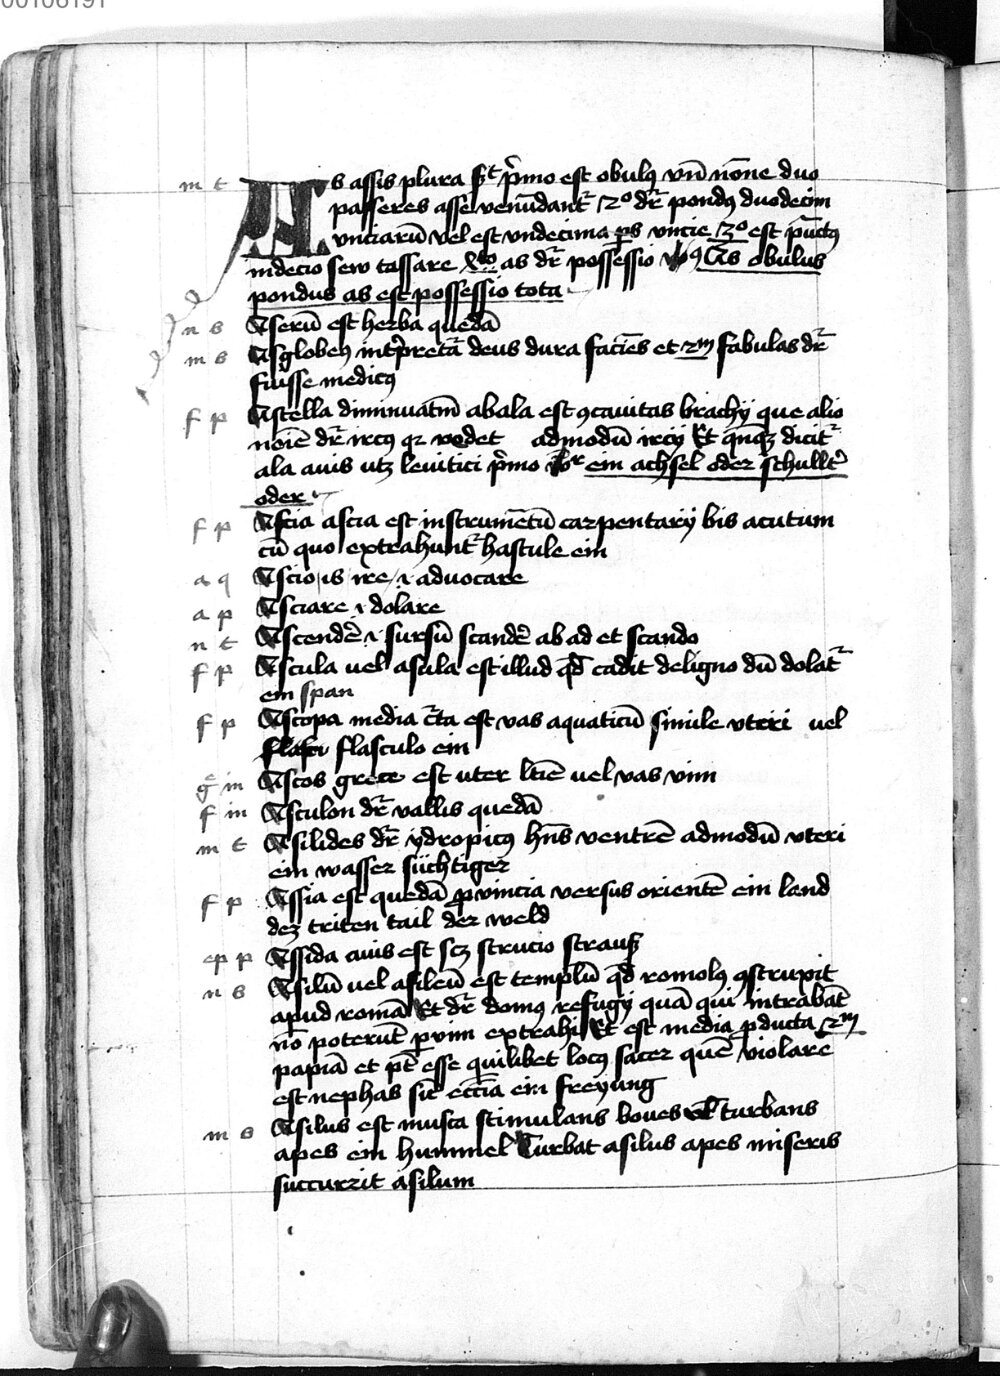 00106191
m t As assis plura st p̄mo est obulꝰ vn̄ nōne duo
passeres asse venūdant᷑ 2º dr̄ pondꝰ duodecim
vnciarū vel est vndecima ꝑs vncie 3º est pūctꝰ
indecio sew tassare as dr̄ possessio As obulus
pondus as est possessio tota
n s Aserū est herba quedā
m s Asglobeꝰ int̄pretā deus dura faciēs et 2m fabulas dr̄
fuisse medicꝰ
f p Astella diminuatm̄ abala est ꝯcauitas brachij que alio
noīe dr̄ ircꝰ qꝛ redet admodū ircij Et qn̄qꝫ dicit᷑
ala auis utꝫ leuitici p̄mo ein achsel oder schullt᷑
oder
f p Ascia ascia est instrumētū carpentarij bis acutum
cū quo extrahunt᷑ hastule ein
a q Ascio is ire .i. advocare
a p Asciare .i. dolare
n t Ascendē᷑ .i. sursū scandē᷑ ab ad et scando
f p Ascula uel asula est illud qd̄ cadit deligno dū dolat᷑
ein span
f p Ascopa media c̄ta est vas aquaticū simile vteri uel
flasculo ein
g̊ in Ascos grece est uter ltīe uel vas vini
f in Asculon dr̄ vallis quedā
m t Asilides dr̄ ydropicꝰ hn̄s ventrē admodū vteri
ein wasser süchtiger
f p Assia est quedā ꝓvincia versus orientē ein land
deꝫ triten tail der weld
ep p Assida auis est scꝫ strucio strauß
n s Asilū uel asileū est templū qd̄ romolꝰ ꝯstruxit
apud romā Et dr̄ domꝰ refugij quā qui intrabāt
nō poterūt ꝑ vim extrahi Et est media ꝓducta 2m
papiā et pt̄ esse quilibet locꝰ sacer quē violare
est nephas sic̄ ecc̄ia ein freyung
m s Asilus est musca stimulans boues vel turbans
apes ein hummel Turbat asilus apes miseris
succurzit asilum